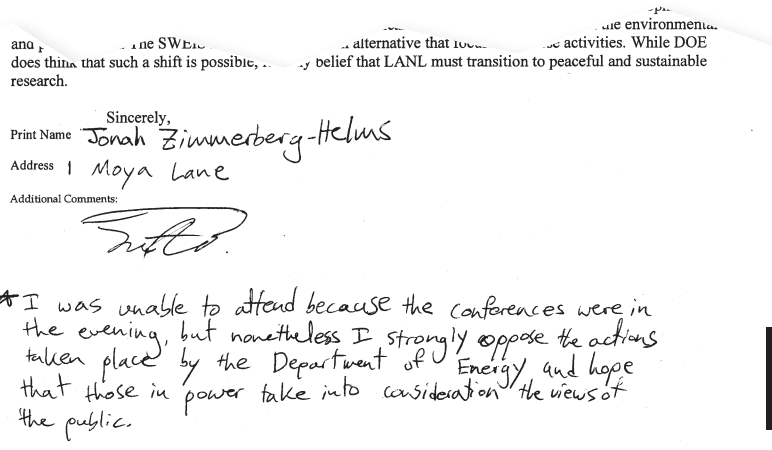 the environmental
and The SWEIS alternative that activities. While DOE
does think that such a shift is possible, belief that LANL must transition to peaceful and sustainable
research.
Sincerely,
Print Name Jonah Zimmerberg-Helms
Address 1 Moya Lane
Additional Comments:
* I was unable to attend because the conferences were in
the evening, but nonetheless I strongly oppose the actions
taken place by the Department of Energy and hope
that those in power take into consideration the views of
the public.